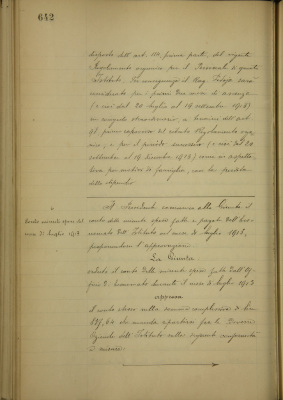 642
disposto dell'art. 111, prima parte, del vigente
Regolamento organico per il Personale di questo
Istituto. In conseguenza il Rag. sarà
considerato per i primi due mesi di assenza
(e cioè dal 20 luglio al 19 settembre 1913)
in congedo straordinario, a termini dell'art.
primo capoverso del citato Regolamento orga-
nico; e per il periodo successivo (e cioè dal 20
settembre al 19 dicembre 1913) come in aspetta-
tiva per motivi di famiglia, con la perdita
dello stipendio.
Conto minute spese del
mese di luglio 1913
Il Presidente comunica alla Giunta il
conto delle minute spese fatte e pagate dall'Eco-
nomato dell'Istituto nel mese di luglio 1913,
proponendone l'approvazione.
La Giunta
veduto il conto delle minute spese fatte dall'Uf-
ficio durante il mese di luglio 1913
approva
il conto stesso nella somma complessiva di Lire
e ne manda
dell'Istituto nella